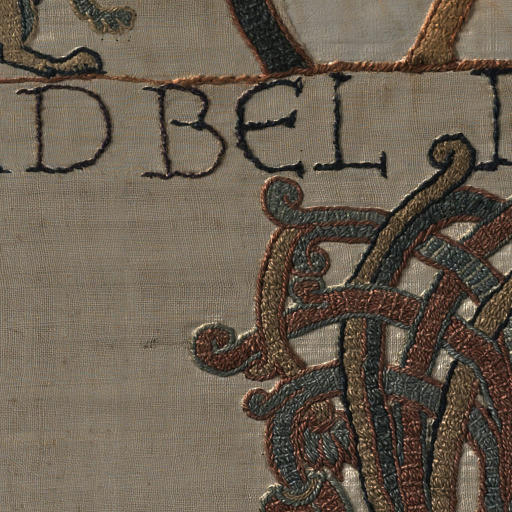 D BEL I